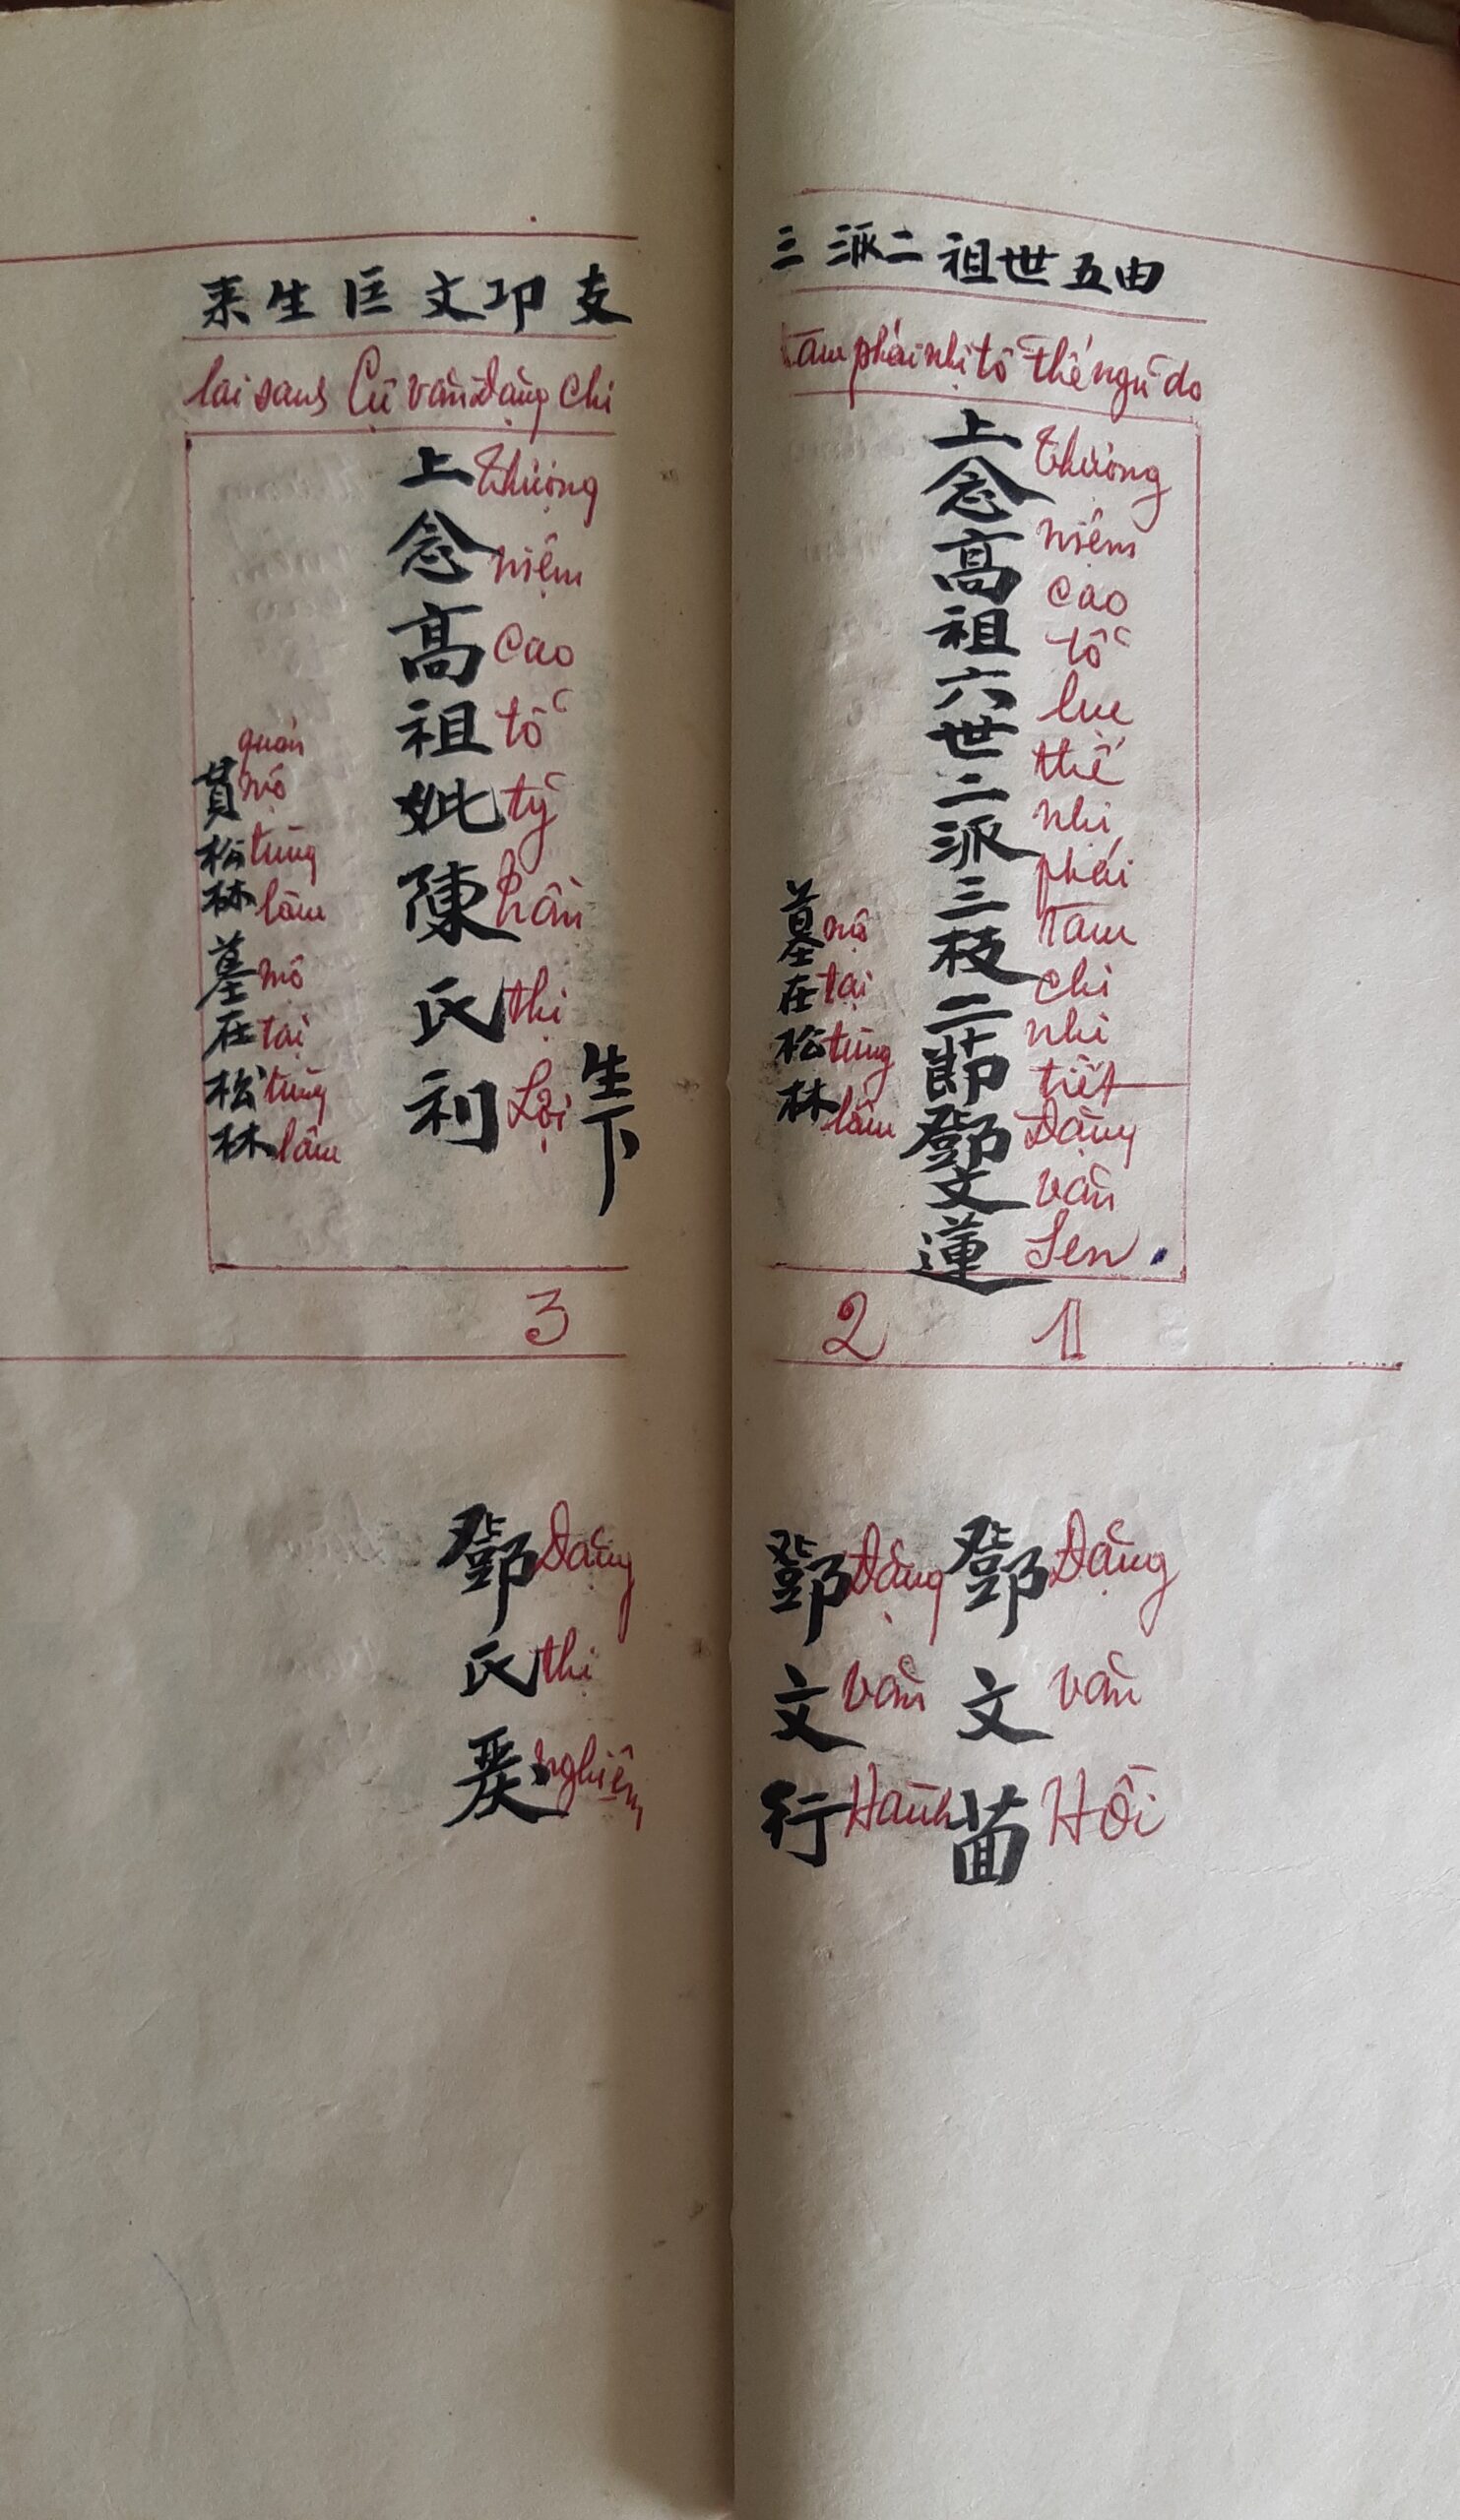 三派二祖世五由
tam phái nhị tổ thế ngũ do
上念高祖六世二派三枝二節鄧文蓮
thượng niệm cao tổ lục thế nhị phái tam chi nhị tiết Đặng văn Sen
墓在松林
mộ tại tùng lâm
1
2
鄧文
Đặng văn Hồi
鄧文行
Đặng văn Hành
来生匡文卭支
lai sanh văn Đặng chi
生下
上念高祖妣陳氏利
thượng niệm cao tổ tỷ trần thị Lợi
貫松林墓在松林
quán mộ tùng lâm mộ tại tùng lâm
3
鄧氏
Đặng thị nghiêm